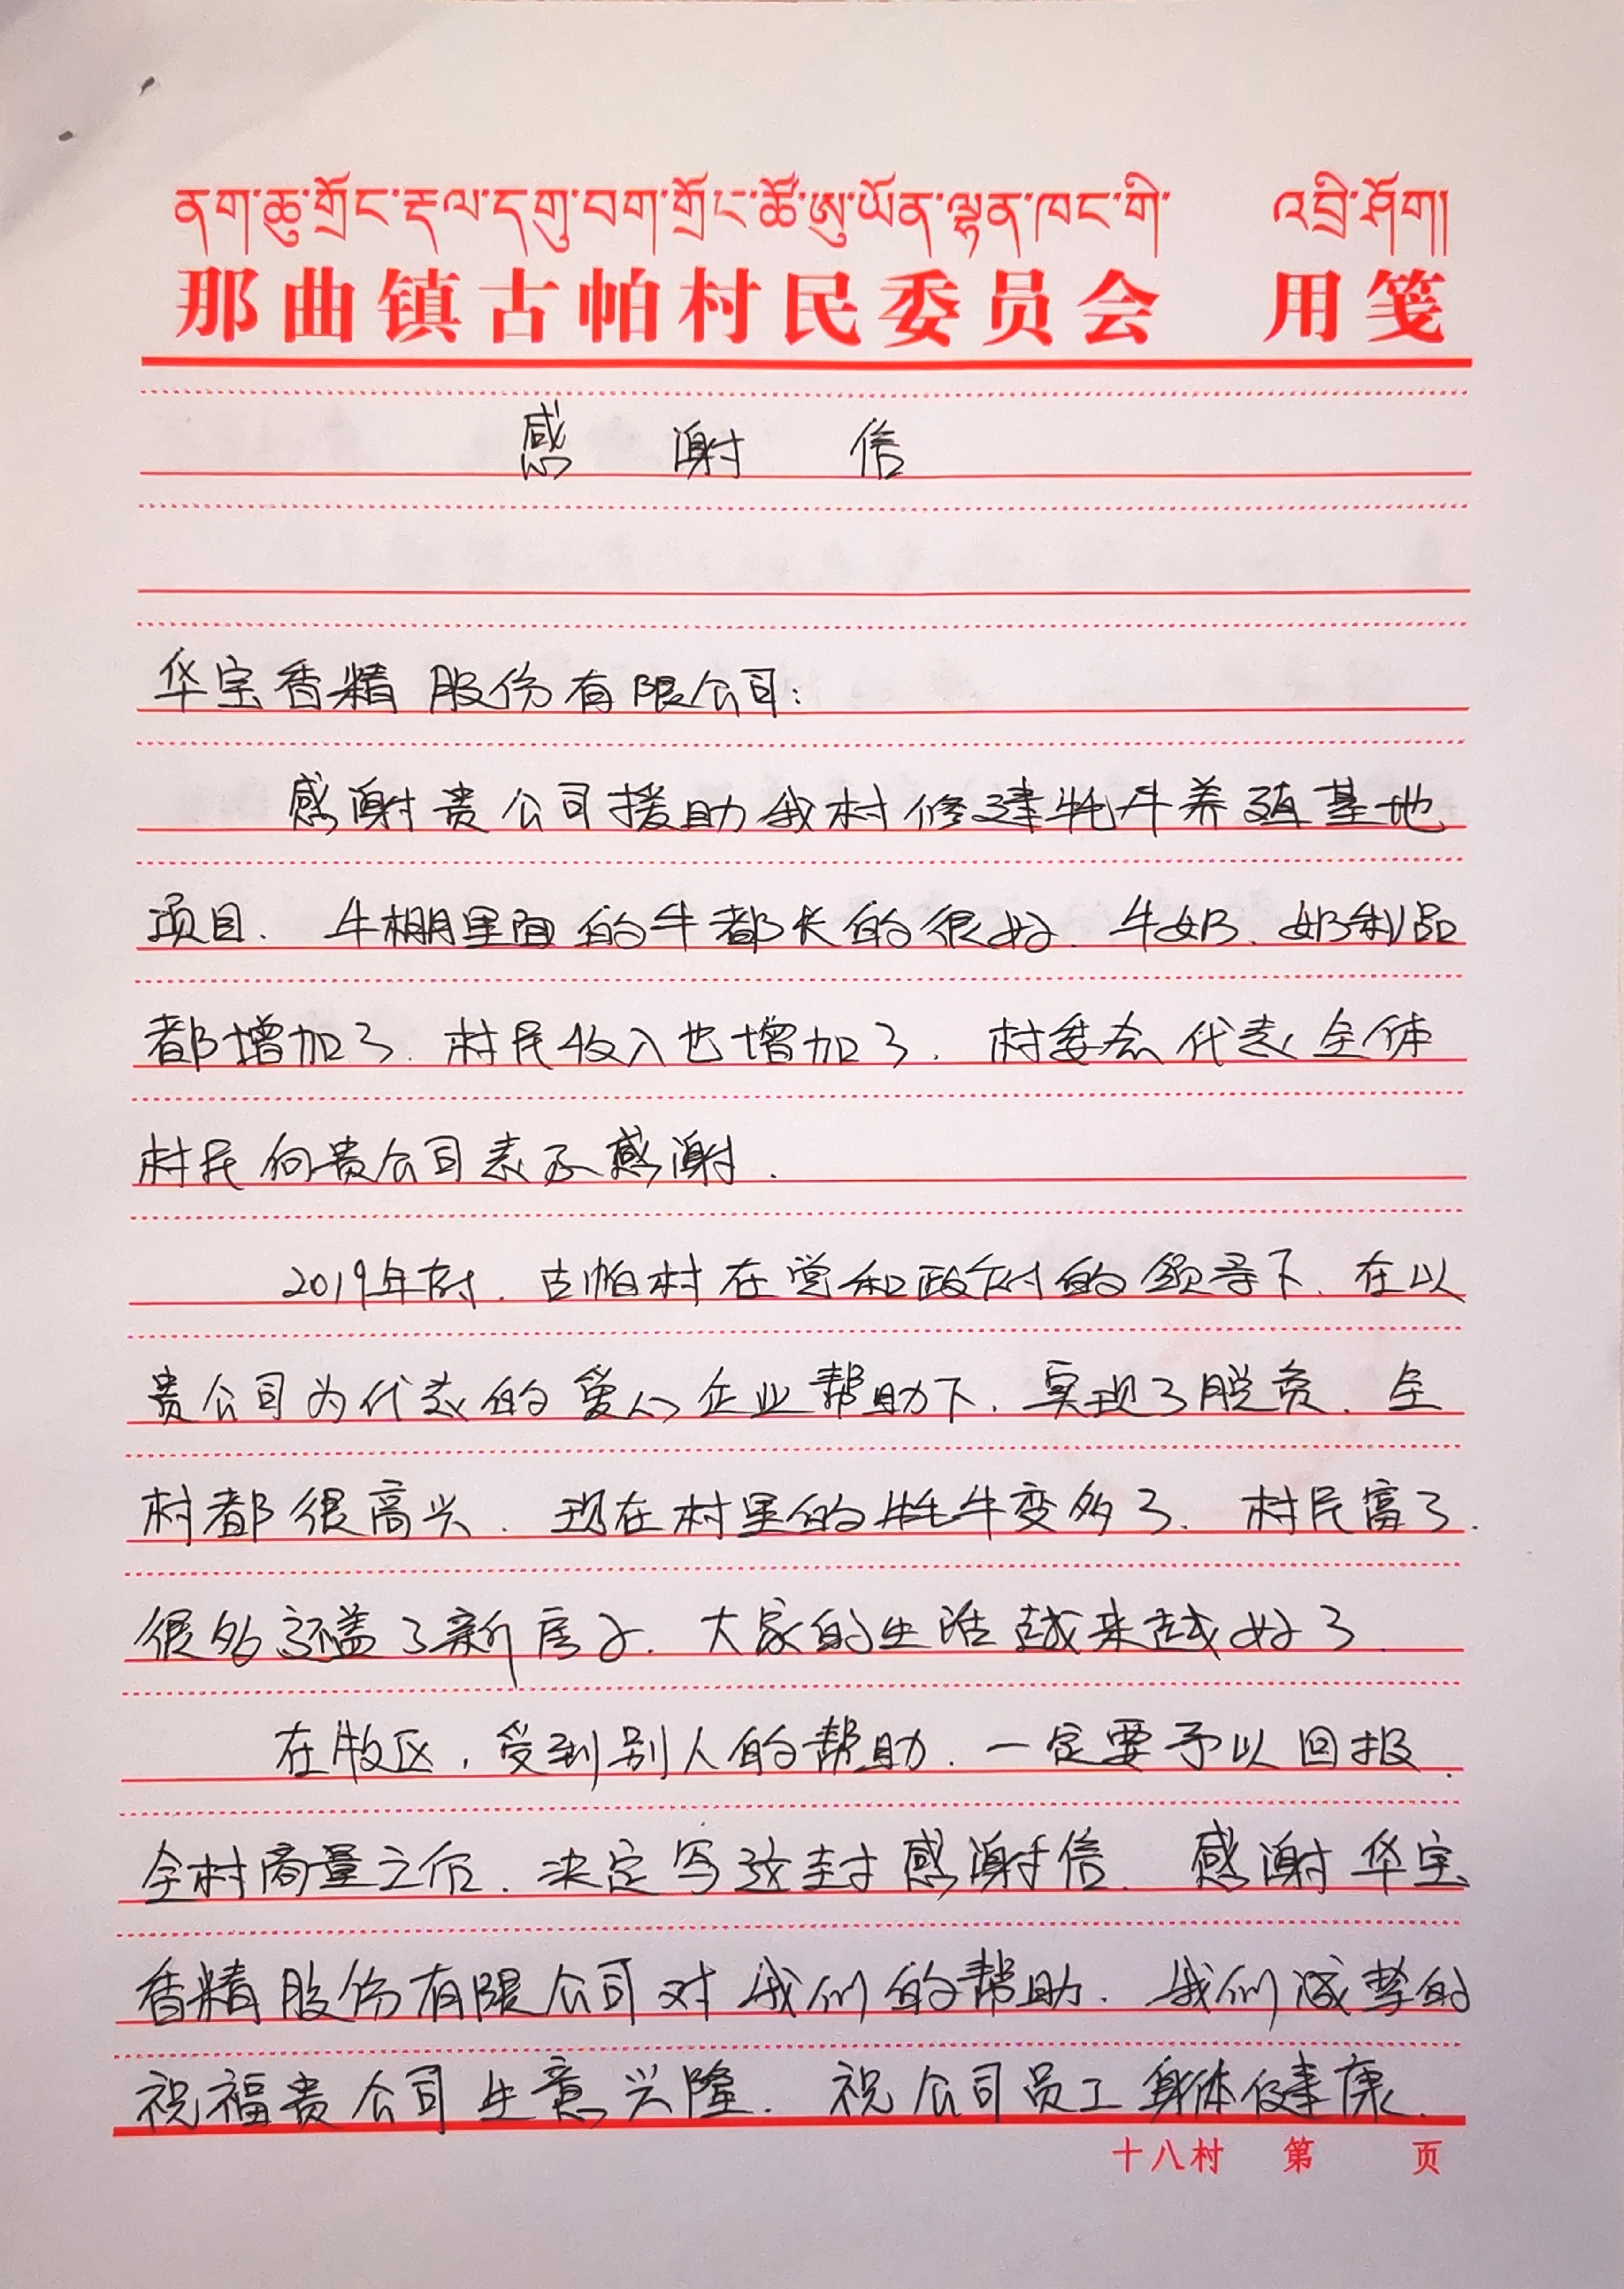 ནག་ཆུ་གྲོང་རྡལ་དགུ་བག་གྲོང་ཚོ་ཨུ་ཡོན་ལྷན་ཁང་གི་ འབྲི་ཤོག།
那曲镇古帕村民委员会 用笺
感谢信
华宝香精股份有限公司:
感谢贵公司援助我村修建牦牛养殖基地
项目. 牛棚里面的牛都长的很好. 牛奶、奶制品
都增加了. 村民收入也增加了. 村委会代表全体
村民向贵公司表示感谢.
2019年时. 古帕村在党和政府的领导下. 在以
贵公司为代表的爱心企业帮助下. 实现了脱贫. 全
村都很高兴. 现在村里的牦牛变多了. 村民富了.
很多还盖了新房子. 大家的生活越来越好了.
在牧区, 受到别人的帮助. 一定要予以回报.
全村商量之后. 决定写这封感谢信. 感谢华宝
香精股份有限公司对我们的帮助. 我们诚挚的
祝福贵公司生意兴隆. 祝公司员工身体健康.
十八村 第 页